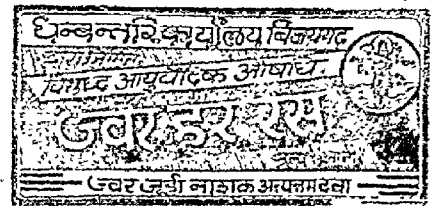 धन्वन्तरि कार्यालय विजयगढ़
विशुद्ध आयुर्वेदिक औषधि
ज्वर हर रस
ज्वर जूड़ी नाशक अत्युत्तम दवा